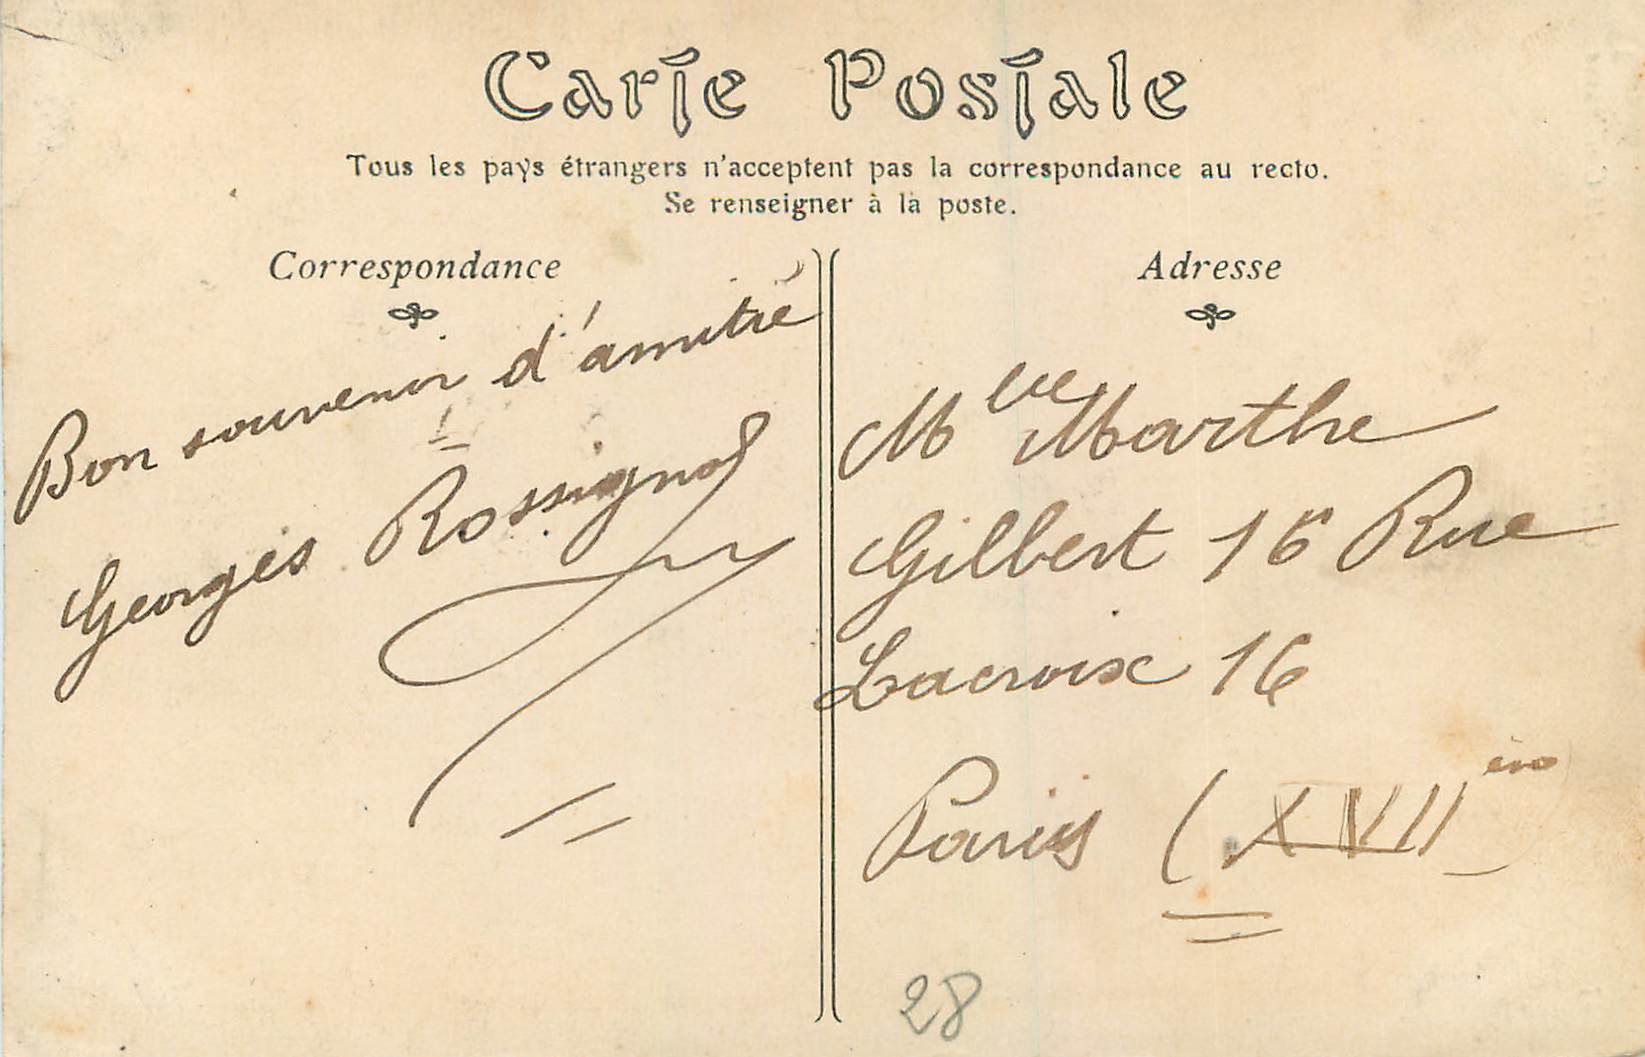 Carte Postale
Tous les pays étrangers n'acceptent pas la correspondance au recto.
Se renseigner à la poste.
Correspondance
Bon souvenir d'amitié
Georges Rossignol
Adresse
Mlle Marthe
Gilbert 16 Rue
Lacroix 16
Paris (XVIIème)
28